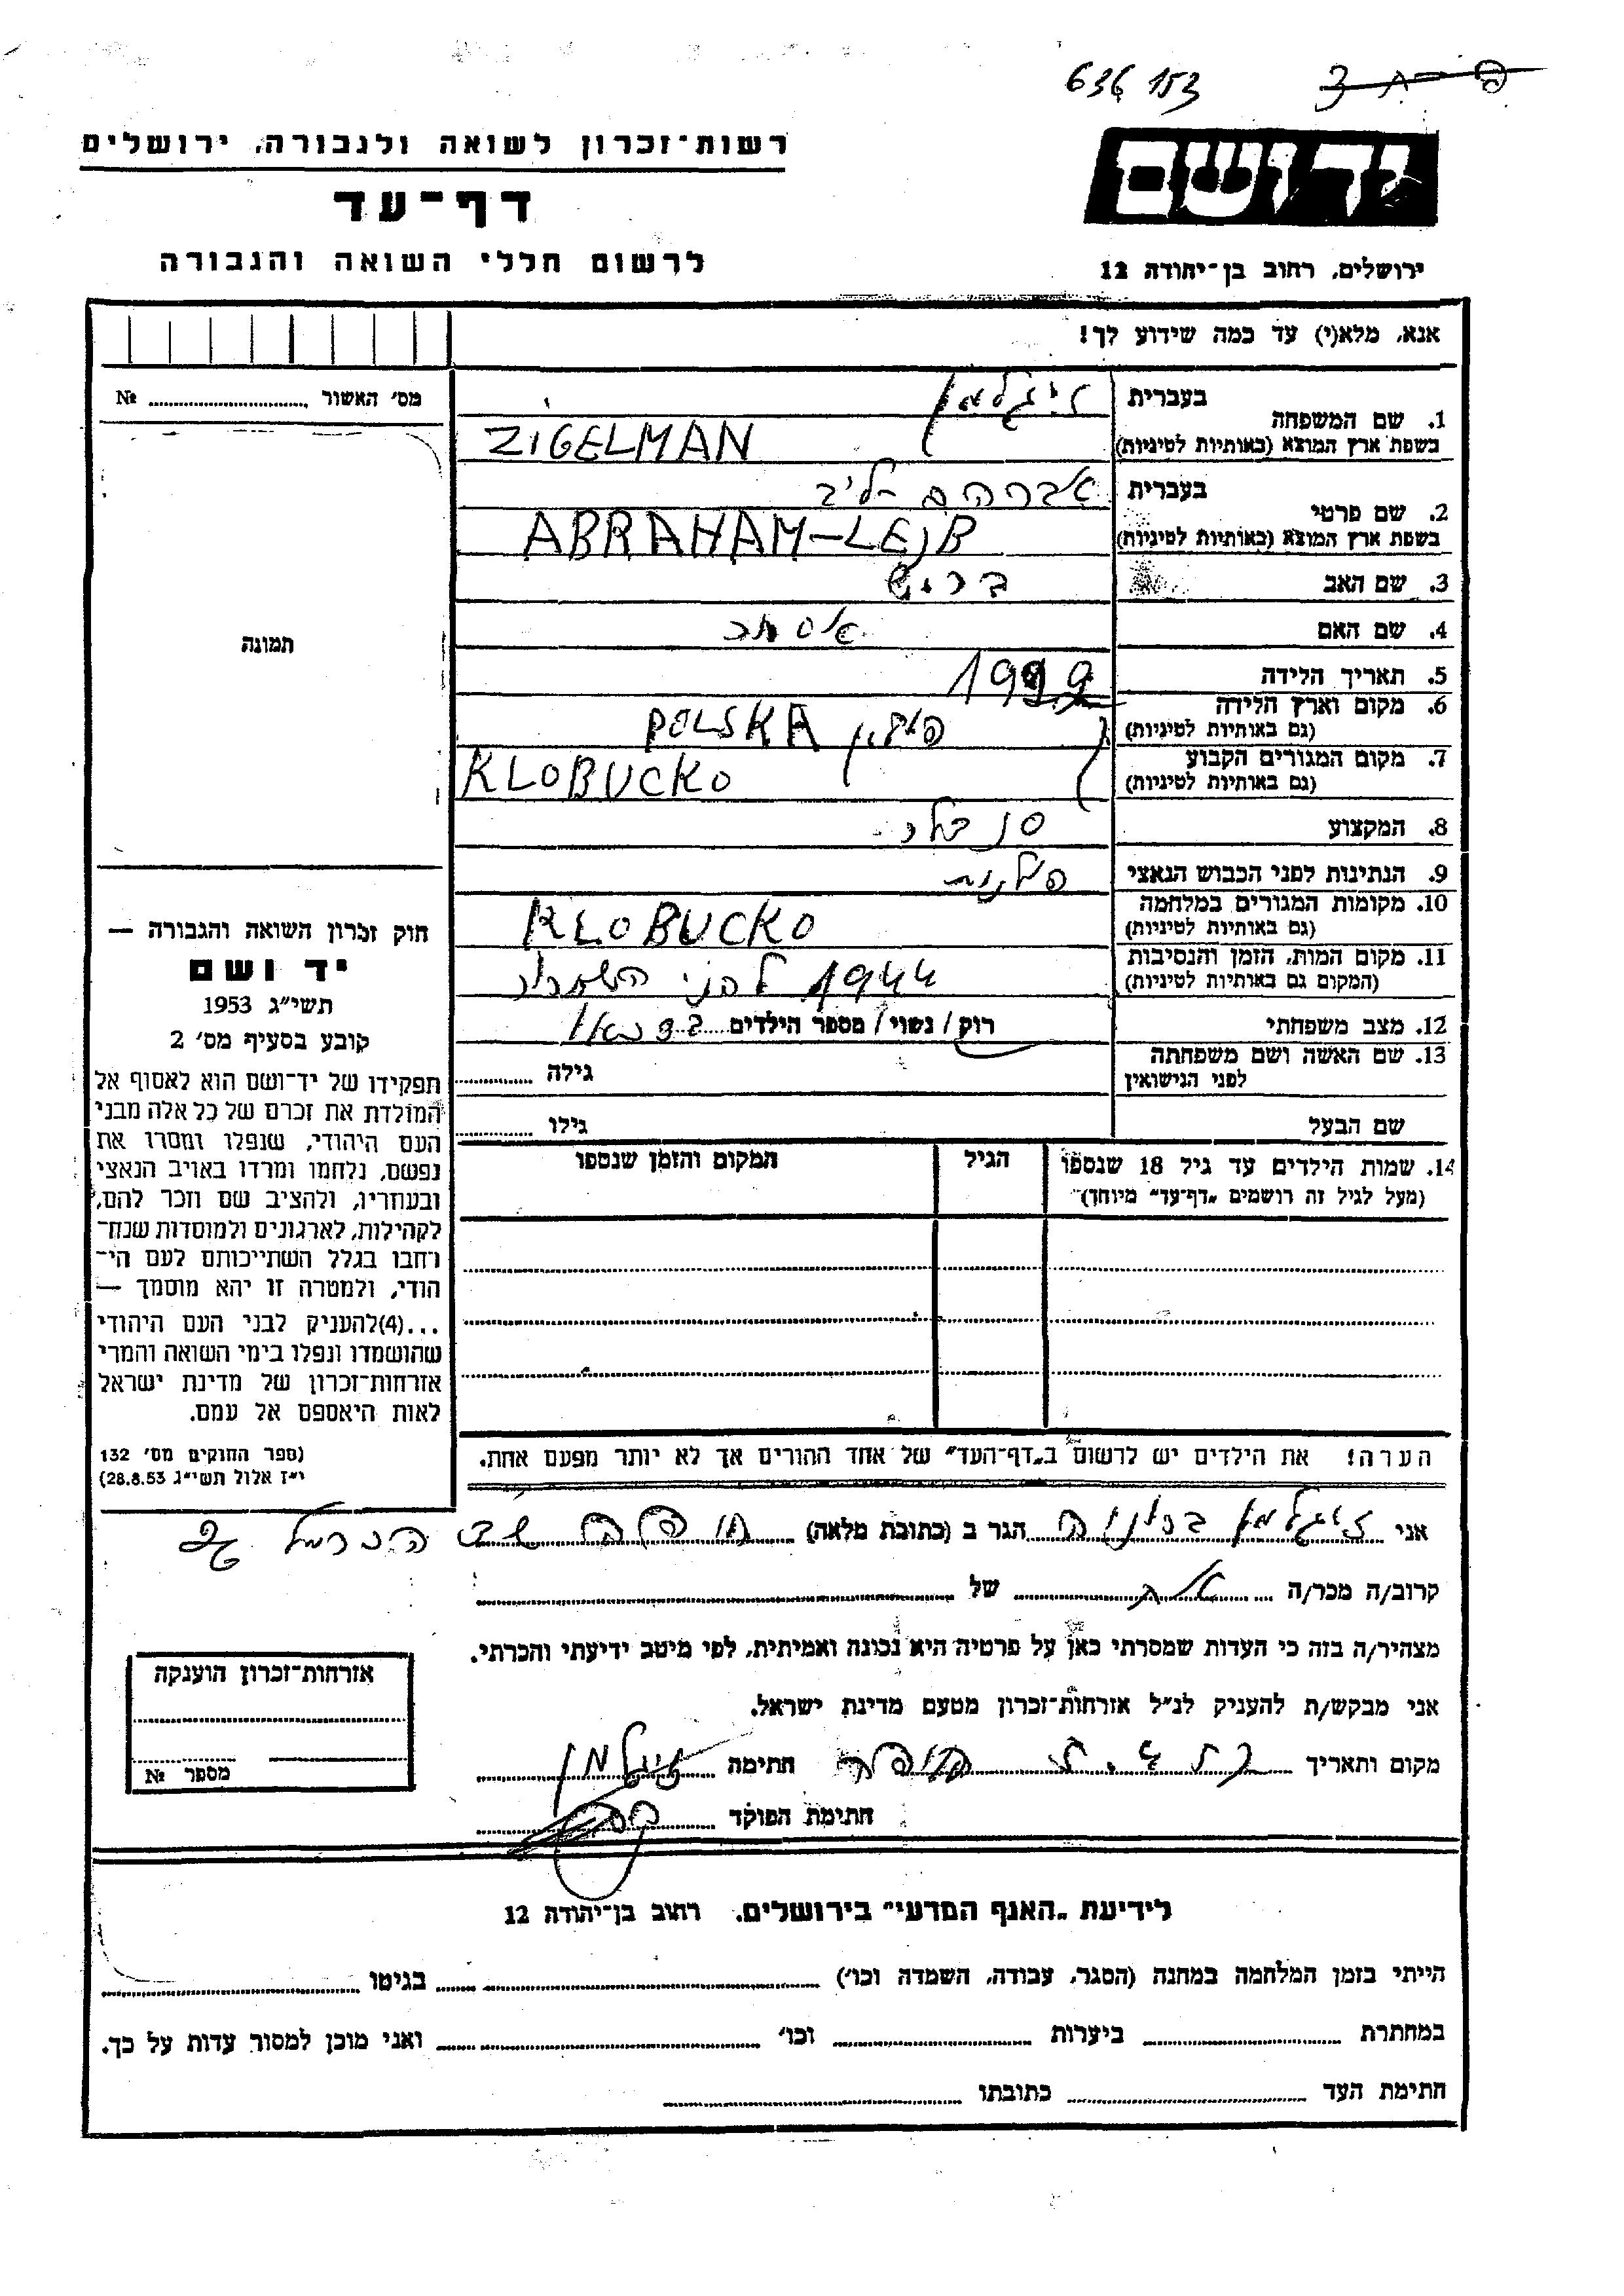 636153
רשות־זכרון לשואה ולגבורה, ירושלים
יד ושם
דף־עד
לרשום חללי השואה והגבורה
ירושלים, רחוב בן־יהודה 12
אנא, מלא(י) עד כמה שידוע לך!
מס' האשור № ........
1. שם המשפחה
בעברית זיגלמן
בשפת ארץ המוצא (באותיות לטיניות) ZIGELMAN
2. שם פרטי
בעברית אברהם ליב
בשפת ארץ המוצא (באותיות לטיניות) ABRAHAM-LEJB
3. שם האב
4. שם האם אסתר
5. תאריך הלידה
6. מקום וארץ הלידה
(גם באותיות לטיניות) פולין POLSKA
7. מקום המגורים הקבוע
(גם באותיות לטיניות) KLOBUCKO
8. המקצוע סנדלר
9. הנתינות לפני הכבוש הנאצי פולנית
10. מקומות המגורים במלחמה
(גם באותיות לטיניות) KLOBUCKO
11. מקום המות, הזמן והנסיבות
(המקום גם באותיות לטיניות) 1944 לפני השחרור
12. מצב משפחתי רוק/ נשוי/ מספר הילדים
13. שם האשה ושם משפחתה
לפני הנישואין גילה ........
שם הבעל גילו ........
14. שמות הילדים עד גיל 18 שנספו
(מעל לגיל זה רושמים „דף־עד״ מיוחד)
הגיל
המקום והזמן שנספו
תמונה
חוק זכרון השואה והגבורה —
יד ושם
תשי״ג 1953
קובע בסעיף מס' 2
תפקידו של יד־ושם הוא לאסוף אל
המולדת את זכרם של כל אלה מבני
העם היהודי, שנפלו ומסרו את
נפשם, נלחמו ומרדו באויב הנאצי
ובעוזריו, ולהציב שם וזכר להם,
לקהילות, לארגונים ולמוסדות שנח־
רחבו בגלל השתייכותם לעם הי־
הודי, ולמטרה זו יהא מוסמך —
...(4)להעניק לבני העם היהודי
שהושמדו ונפלו בימי השואה והמרי
אזרחות־זכרון של מדינת ישראל
לאות היאספם אל עמם.
(ספר החוקים מס' 132
י״ז אלול תשי״ג 28.8.53)
הערה! את הילדים יש לרשום ב„דף־העד״ של אחד ההורים אך לא יותר מפעם אחת.
אני זיגלמן הגר ב (כתובת מלאה) חיפה הכרמל
קרוב/ה מכר/ה של ........
מצהיר/ה בזה כי העדות שמסרתי כאן על פרטיה היא נכונה ואמיתית, לפי מיטב ידיעתי והכרתי.
אני מבקש/ת להעניק לנ״ל אזרחות־זכרון מטעם מדינת ישראל.
מקום ותאריך חיפה חתימה זיגלמן
חתימת הפוקד
אזרחות־זכרון הוענקה
מספר №
לידיעת „האנף המדעי״ בירושלים. רחוב בן־יהודה 12
הייתי בזמן המלחמה במחנה (הסגר, עבודה, השמדה וכו') ........ בגיטו ........
במחתרת ........ ביערות ........ וכו' ........ ואני מוכן למסור עדות על כך.
חתימת העד ........ כתובתו ........